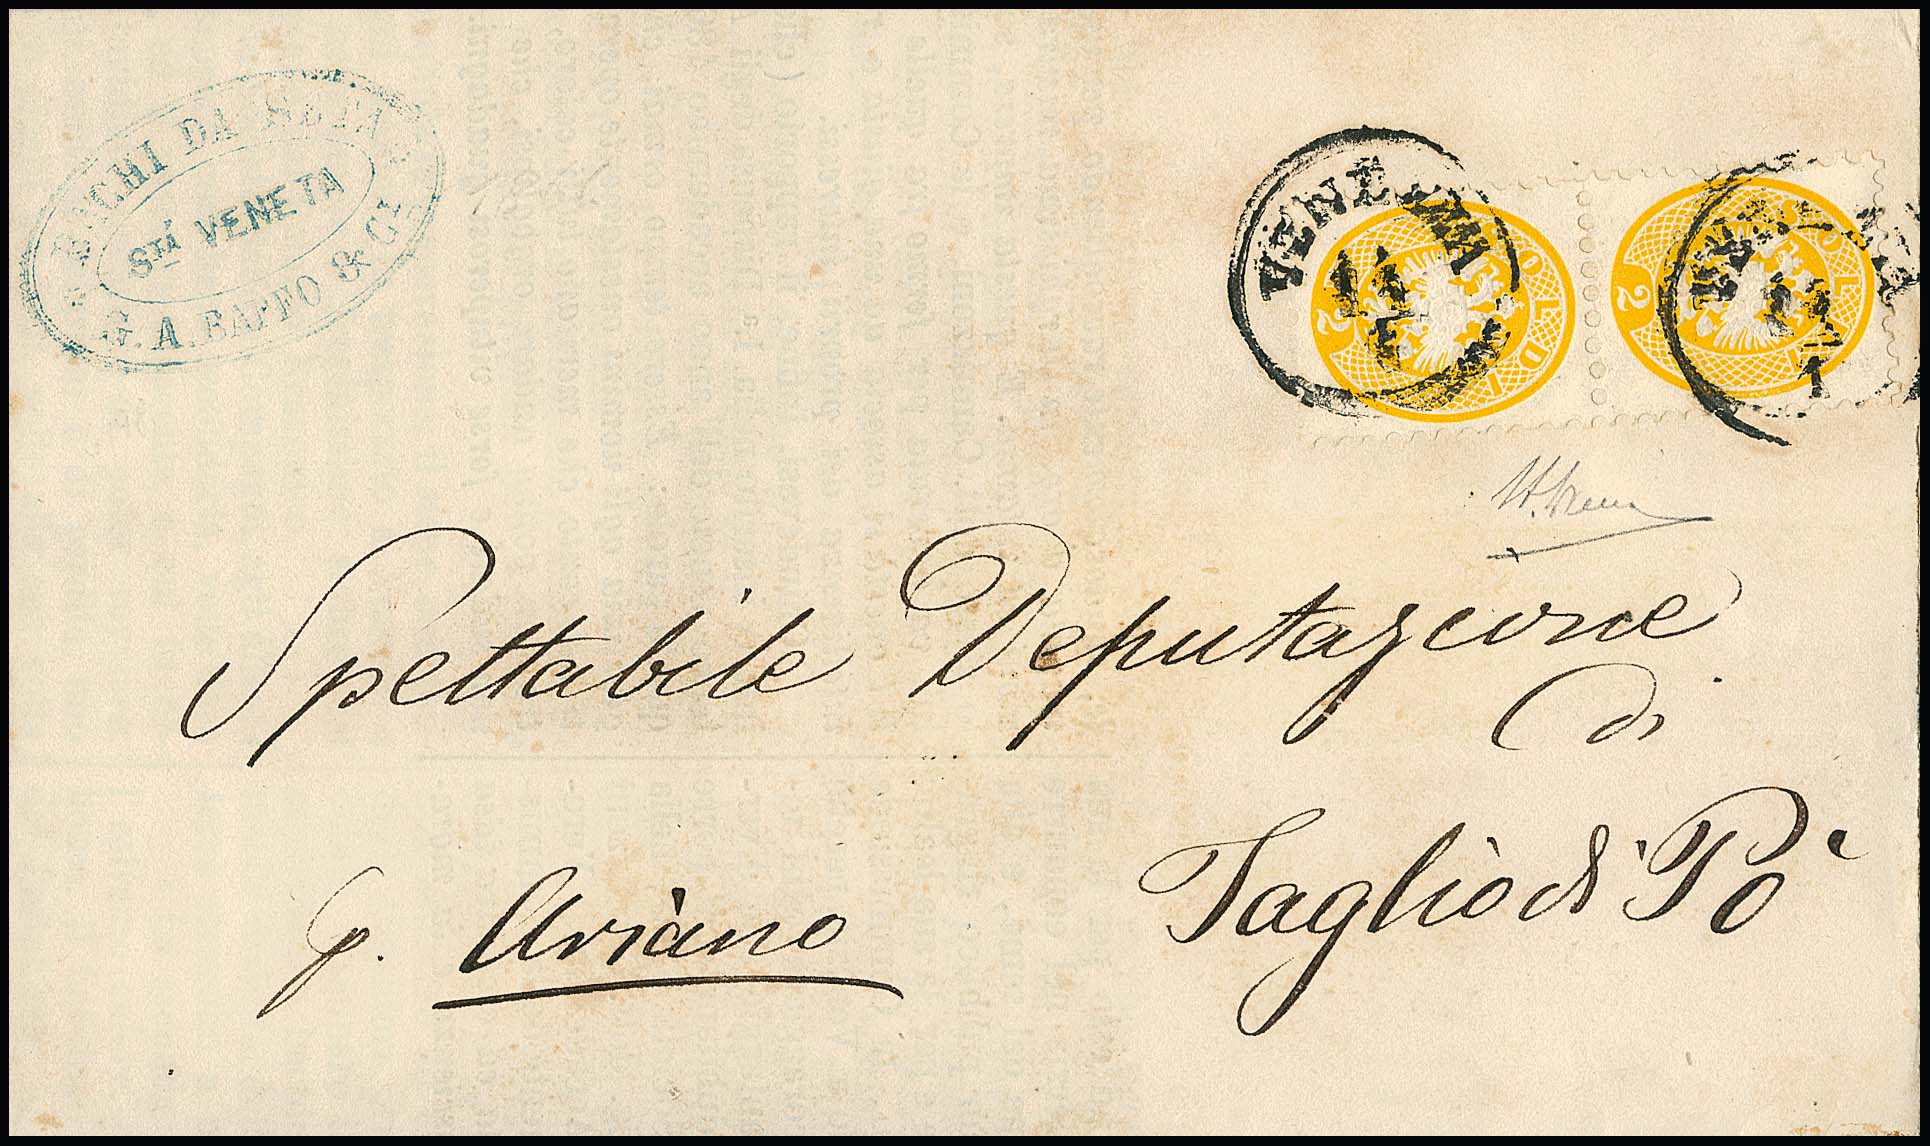 BACHI DA SETA
STÁ VENETA
G. A. BAFFO & CI
VENEZIA
11
2 SOLDI
2 SOLDI
VENEZIA
Spettabile Deputazione
di
Taglio di Pò
p. Ariano